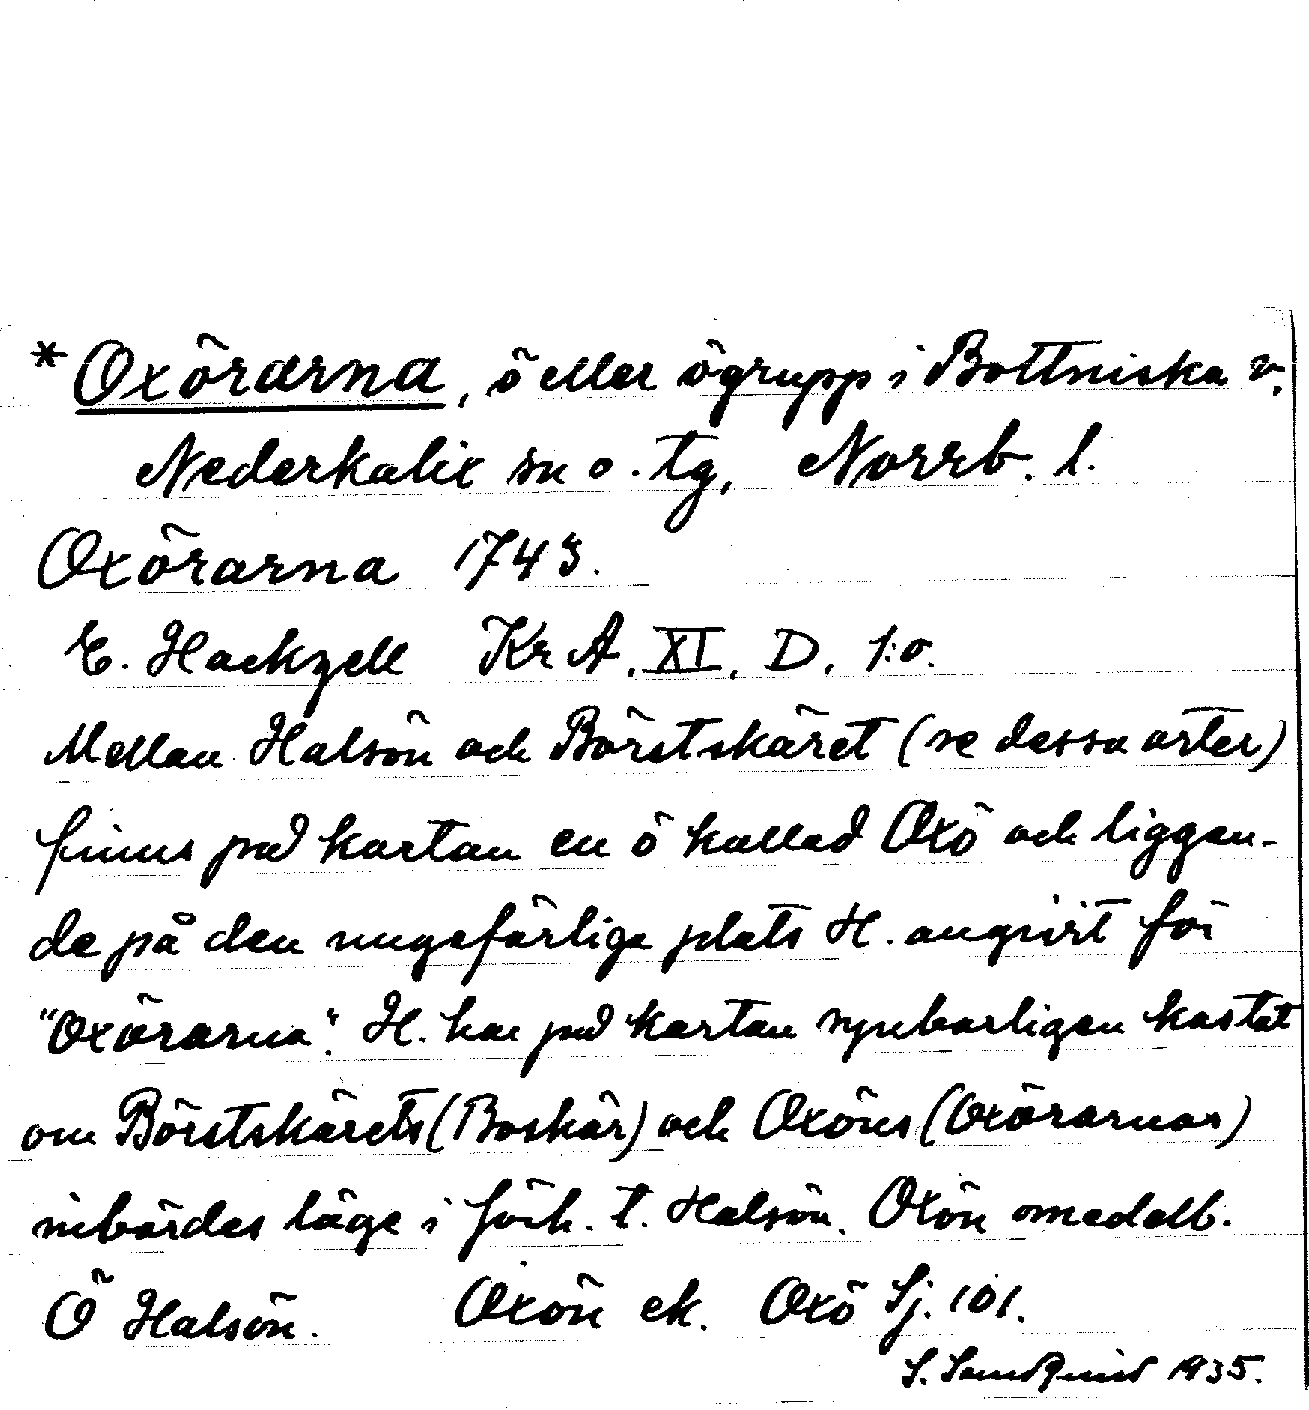 *Oxörarna, ö eller ögrupp i Bottniska v.
Nederkalix sn o. tg, Norrb. l.
Oxörarna 1743.
E. Hackzell KrA. XI. D. 1:o.
Mellan Halsön och Börstskäret (se dessa orter)
finns på kartan en ö kallad Oxö och liggan-
de på den ungefärliga plats H. angivit för
"Oxörarna". H. har på kartan synbarligen kastat
om Börstskärets (Boskär) och Oxöns (Oxörarnas)
inbördes läge i förh. t. Halsön. Oxön omedelb.
Ö Halsön. Oxön ek. Oxö Sj. 101.
S. Sandquist 1935.